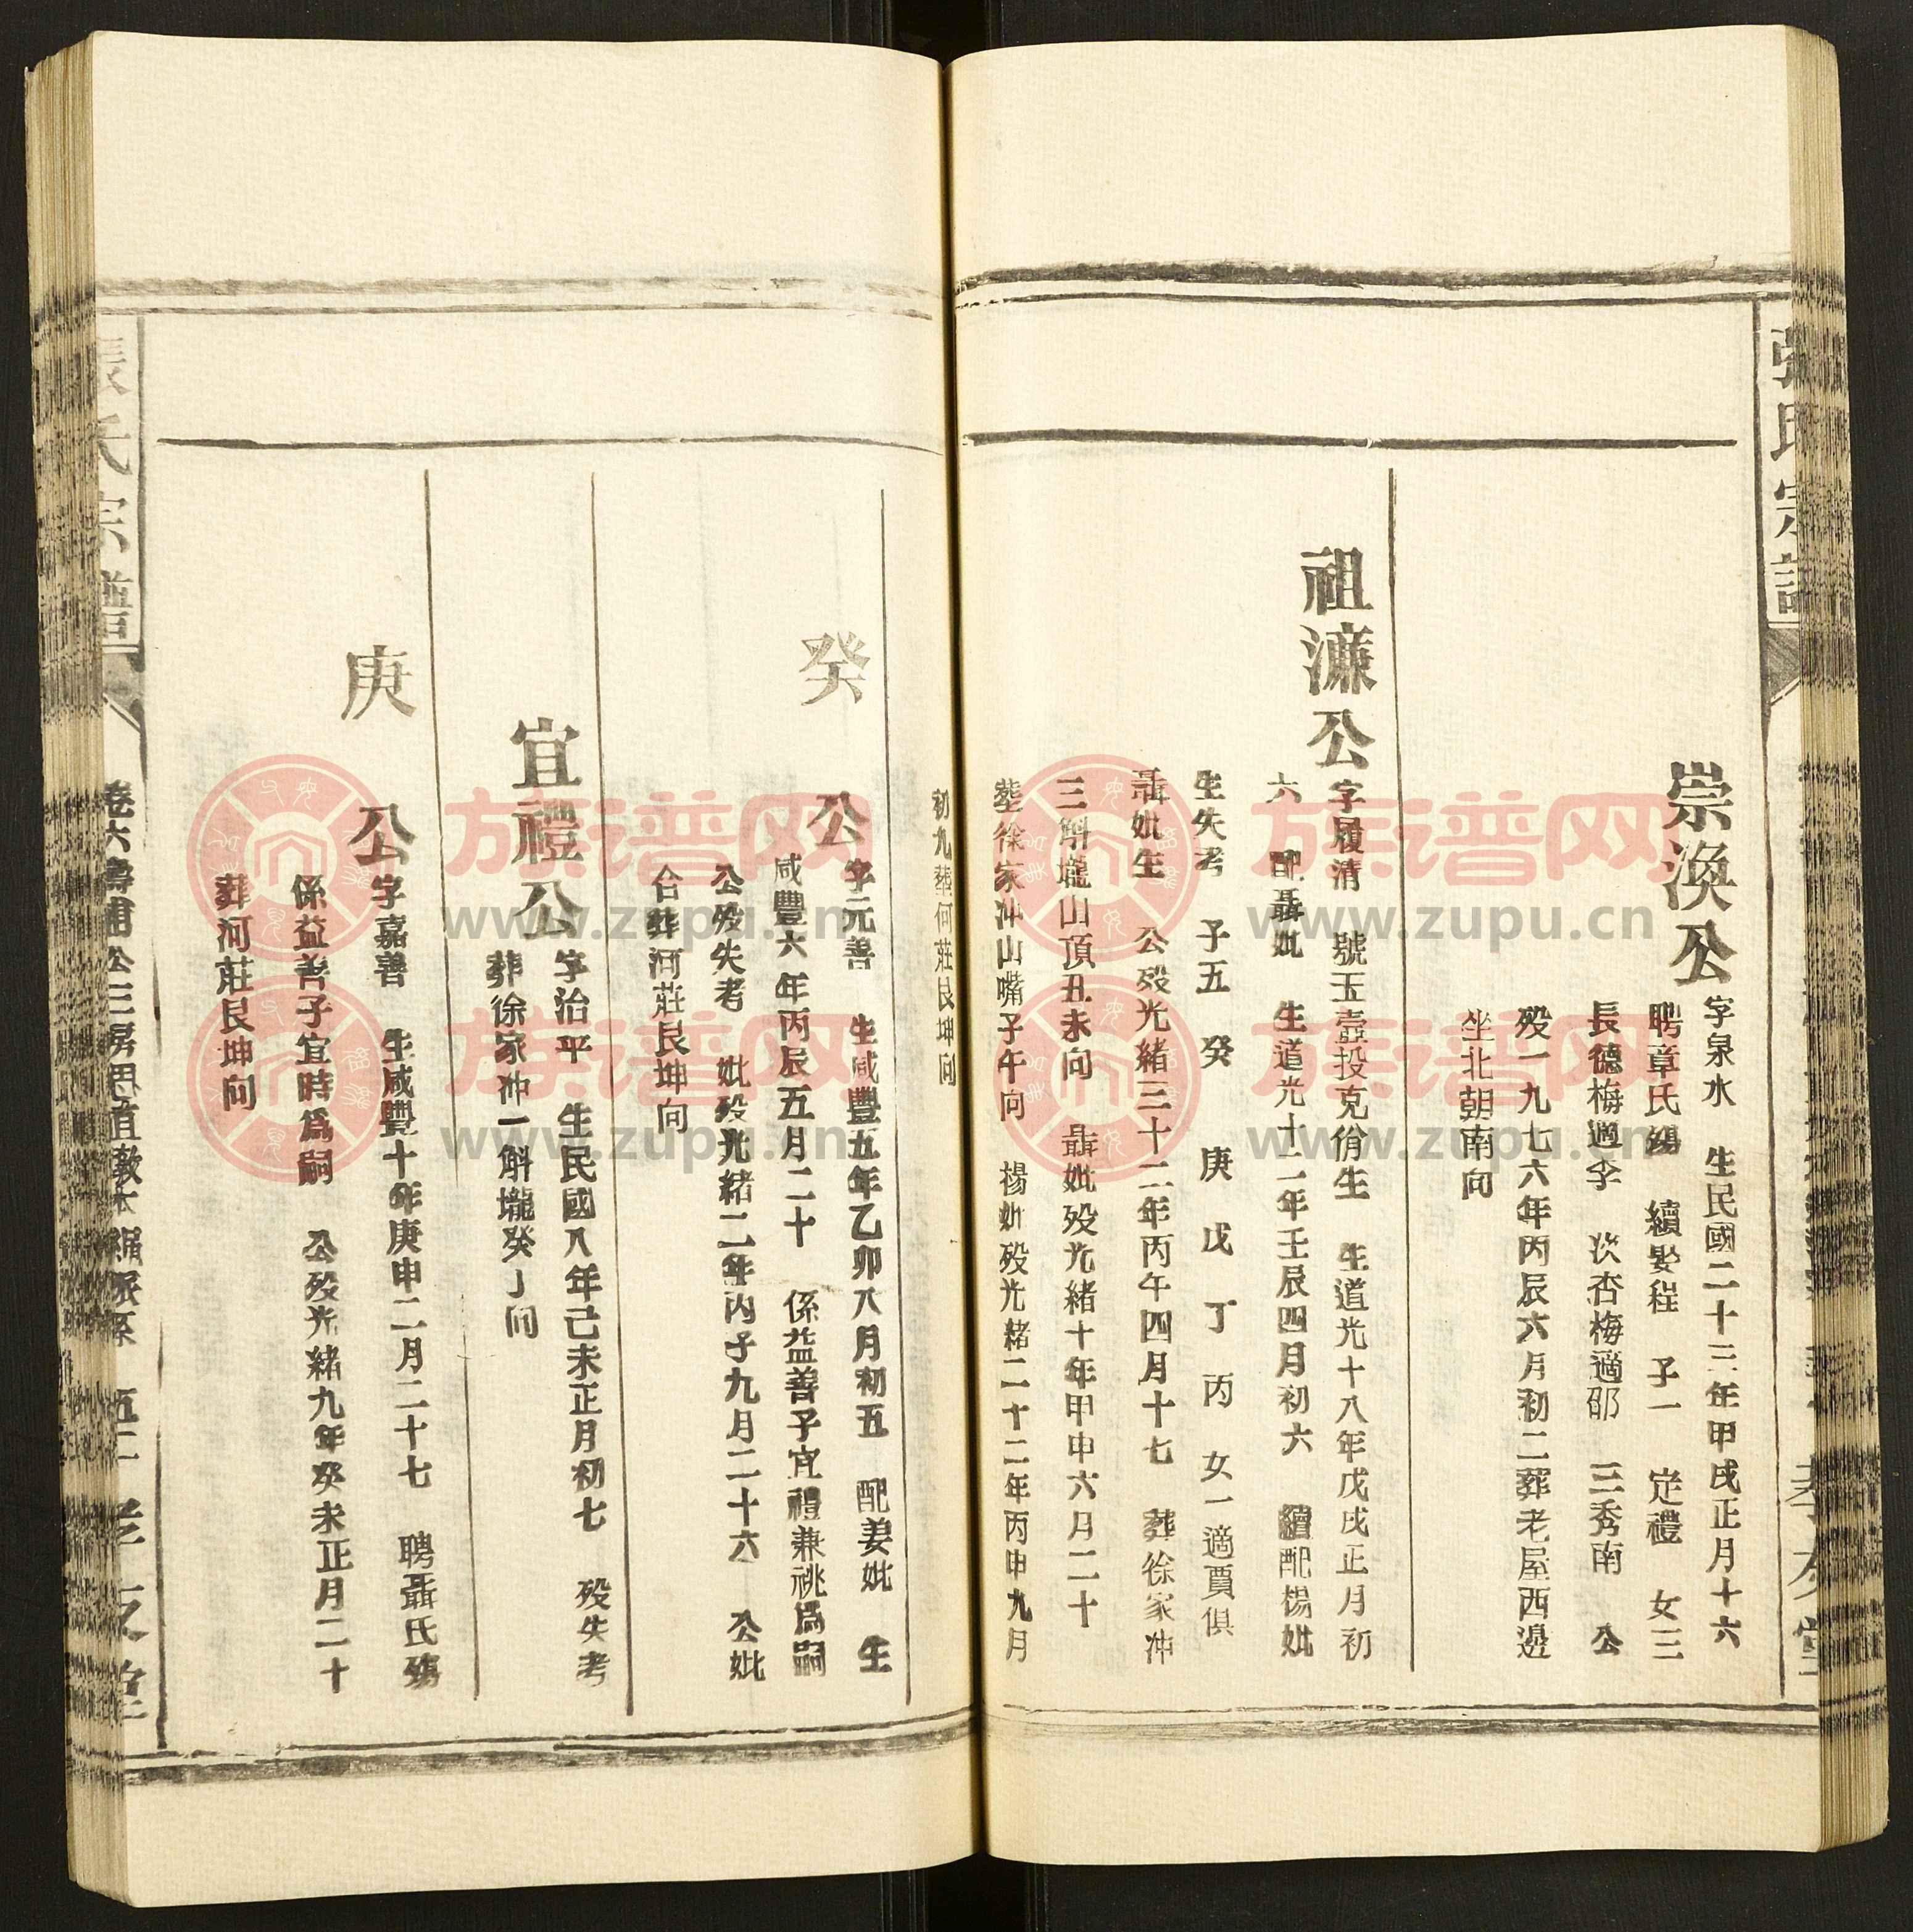 張氏宗譜
崇渙公
字泉水 生民國二十三年甲戌正月十六
聘章氏殤 續娶程 子一 定禮 女三
長德梅適李 次杏梅適邵 三秀南 公
殁一九七六年丙辰六月初二葬老屋西邊
坐北朝南向
祖濂公
字履清 號玉壺投克佾生 生道光十八年戊戌正月初
六 配聶妣 生道光十二年壬辰四月初六 續配楊妣
生失考 子五 癸 庚 戊 丁 丙 女一適賈俱
聶妣生 公殁光緒三十二年丙午四月十七 葬徐家冲
三斛壠山頂丑未向 聶妣殁光緒十年甲申六月二十
葬徐家冲山嘴子午向 楊妣殁光緒二十二年丙申九月
初九葬何莊艮坤向
癸公
字元善 生咸豐五年乙卯八月初五 配姜妣 生
咸豐六年丙辰五月二十 係益善子宜禮兼祧爲嗣
公殁失考 妣殁光緒二年丙子九月二十六 公妣
合葬河莊艮坤向
宜禮公
字治平 生民國八年己未正月初七 殁失考
葬徐家冲一斛壠癸丁向
庚公
字嘉善 生咸豐十年庚申二月二十七 聘聶氏殤
係益善子宜時爲嗣 公殁光緒九年癸未正月二十
葬河莊艮坤向
張氏宗譜
卷六壽甫公三房
孝友堂
族谱网
www.zupu.cn
族谱网
www.zupu.cn
族谱网
www.zupu.cn
族谱网
www.zupu.cn